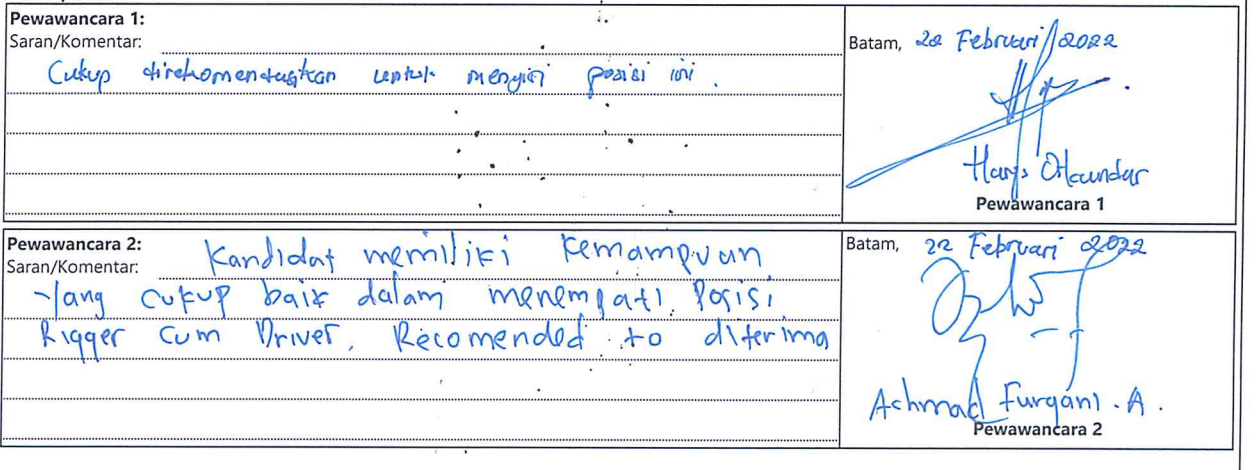 Pewawancara 1:
Saran/Komentar:
Cukup direkomendasikan untuk mengisi posisi ini.
Batam, 22 Februari 2022
Harys
Pewawancara 1
Pewawancara 2:
Saran/Komentar: Kandidat memiliki kemampuan
yang cukup baik dalam menempati posisi
Rigger cum Driver. Recomended to diterima
Batam, 22 Februari 2022
Achmad Furqani . A .
Pewawancara 2